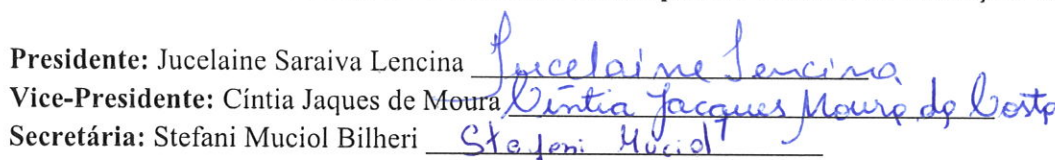 Presidente: Jucelaine Saraiva Lencina Jucelaine Lencina
Vice-Presidente: Cíntia Jaques de Moura Cíntia Jacques Moura da Costa
Secretária: Stefani Muciol Bilheri Stefani Muciol